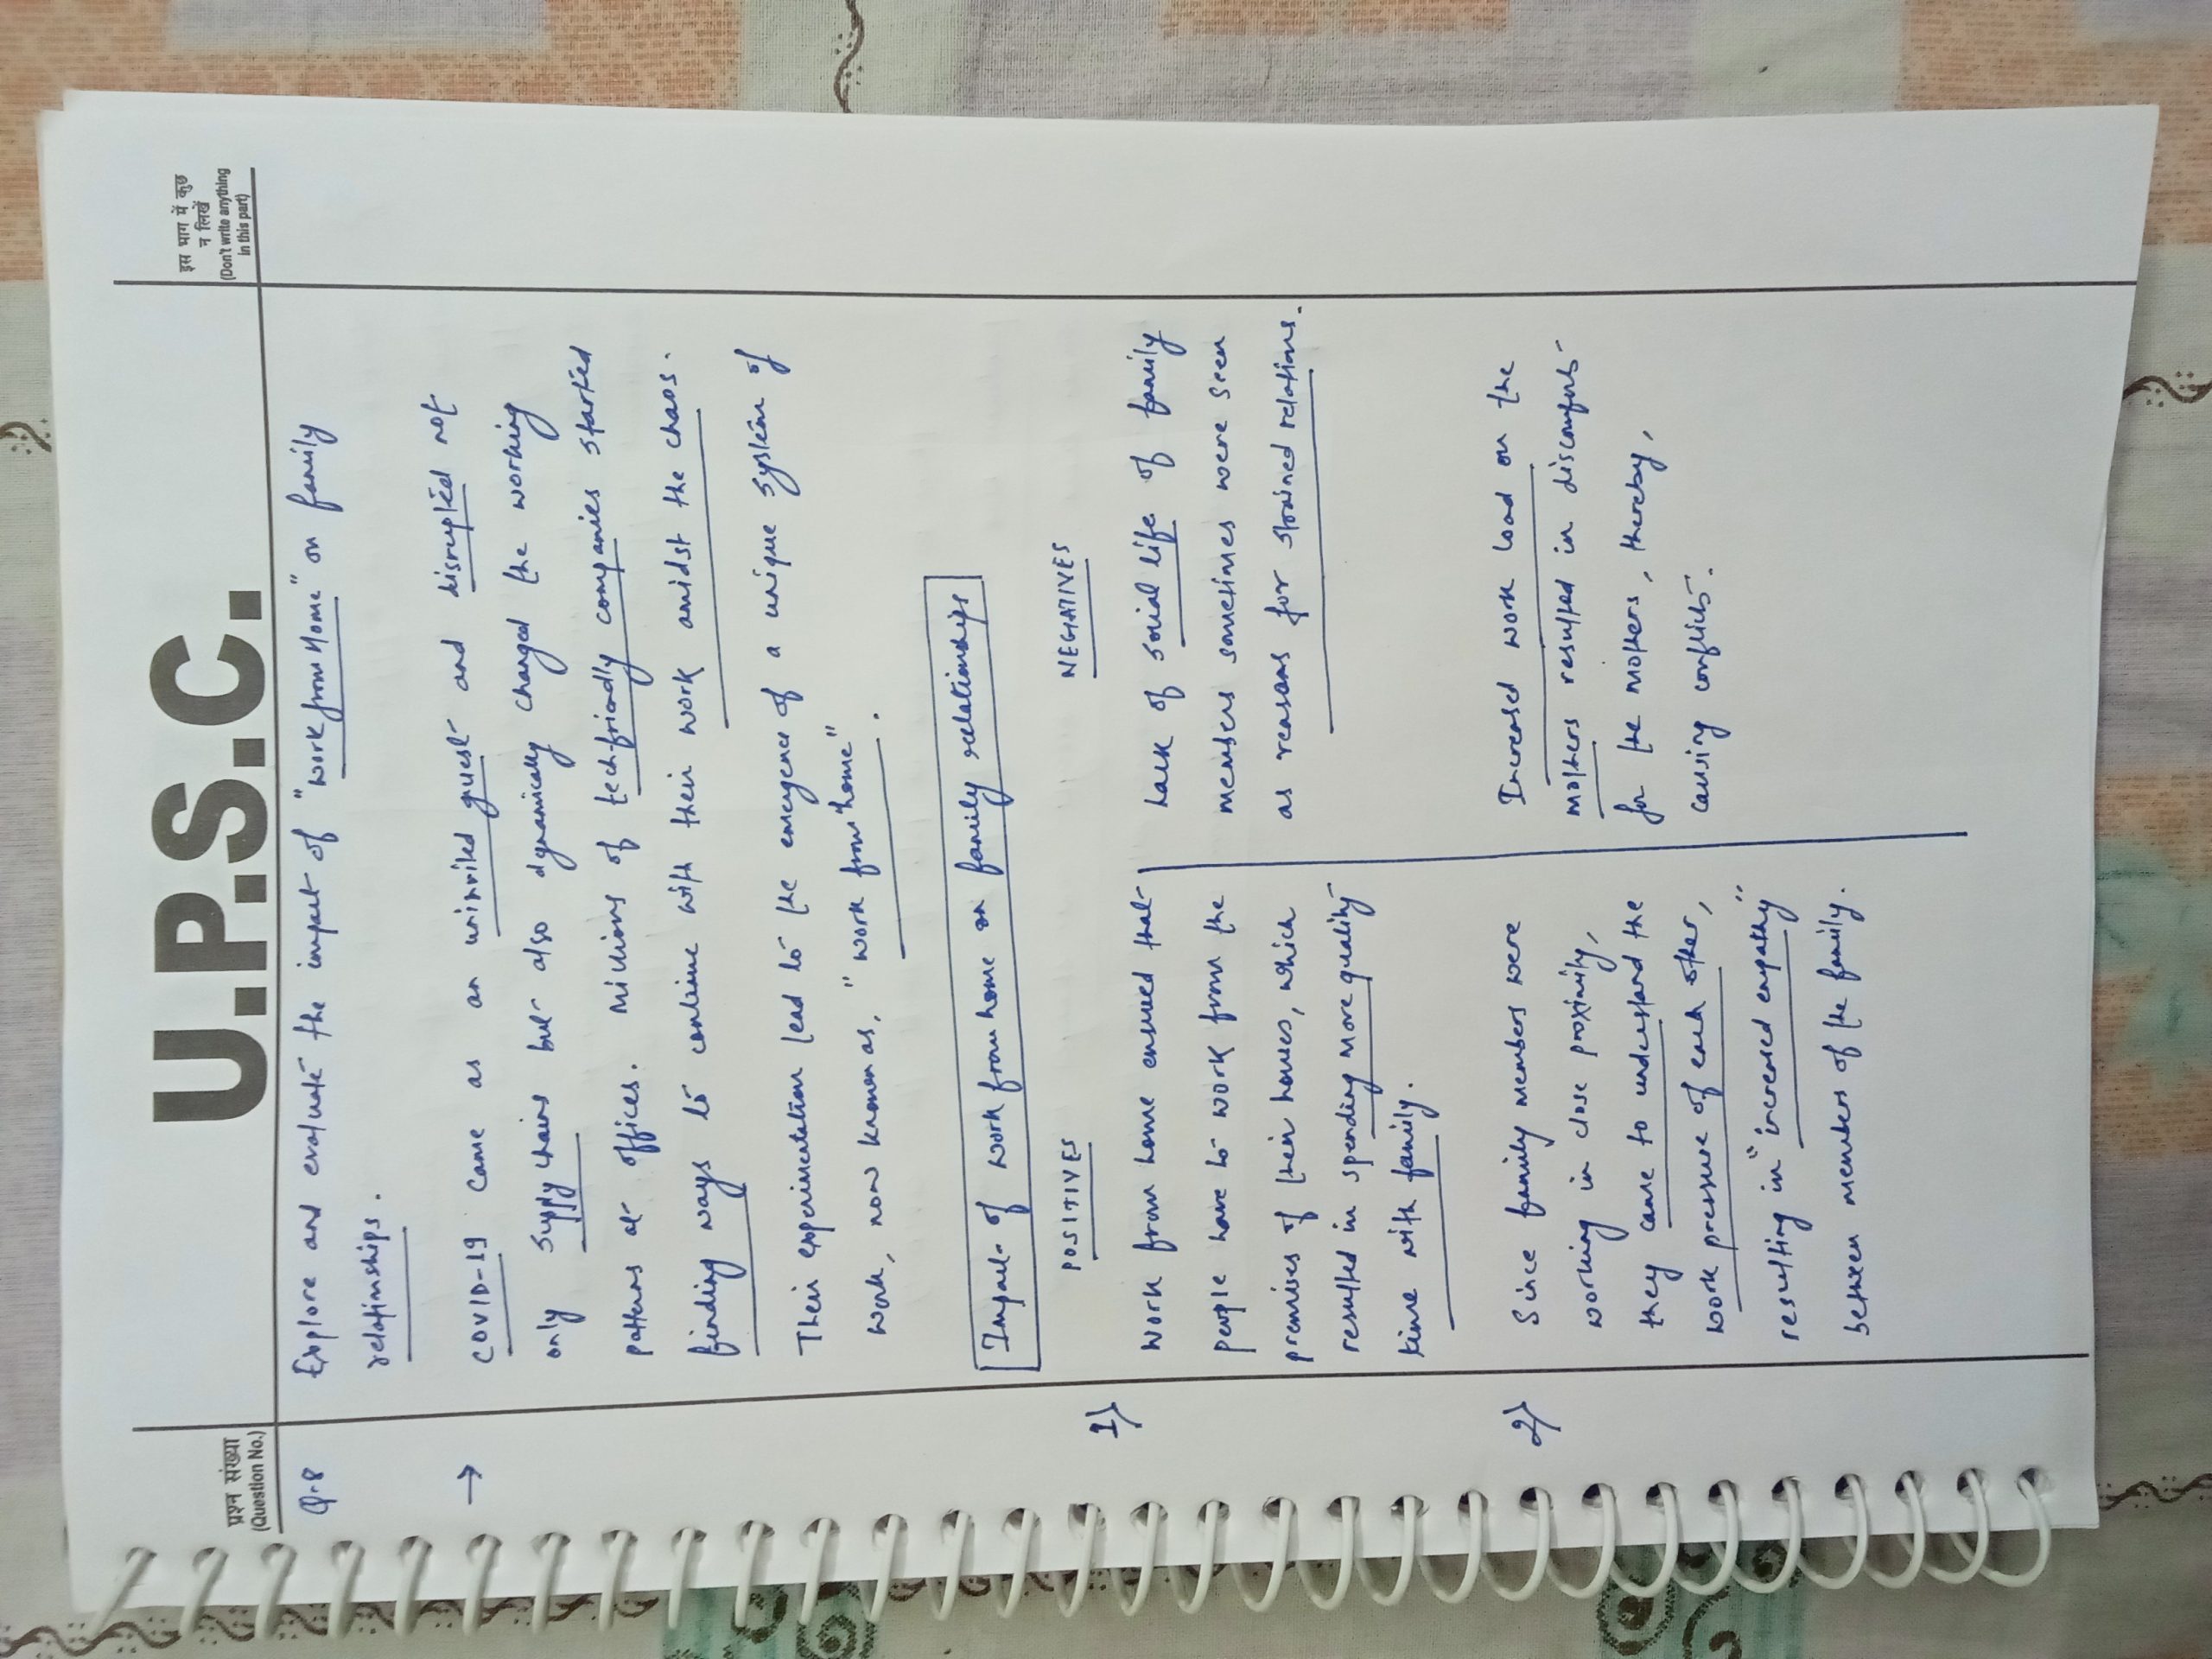 U.P.S.C.
प्रश्न संख्या
(Question No.)
इस भाग में कुछ
न लिखें
(Don't write anything
in this part)
Q.8 Explore and evaluate the impact of "work from Home" on family
relationships.
→ COVID-19 came as an uninvited guest and disrupted not
only supply chains but also dynamically changed the working
patterns at offices. Millions of tech-friendly companies started
finding ways to continue with their work amidst the chaos.
Their experimentation lead to the emergence of a unique system of
work, now known as, "work from home".
Impact of work from home on family relationships
POSITIVES
1) Work from home ensured that
people have to work from the
premises of their houses, which
resulted in spending more quality
time with family.
2) Since family members were
working in close proximity,
they came to understand the
work pressure of each other,
resulting in "increased empathy"
between members of the family.
NEGATIVES
Lack of social life of family
members sometimes were seen
as reasons for strained relations.
Increased work load on the
mothers resulted in discomfort
for the mothers, thereby,
causing conflicts.